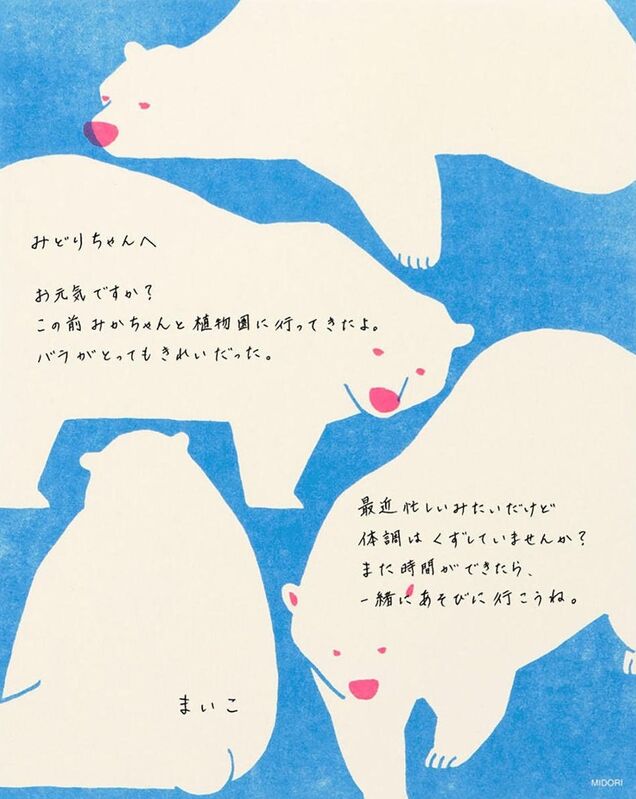 みどりちゃんへ
お元気ですか？
この前みかちゃんと植物園に行ってきたよ。
バラがとってもきれいだった。
最近忙しいみたいだけど
体調はくずしていませんか？
また時間ができたら、
一緒にあそびに行こうね。
まいこ
MIDORI